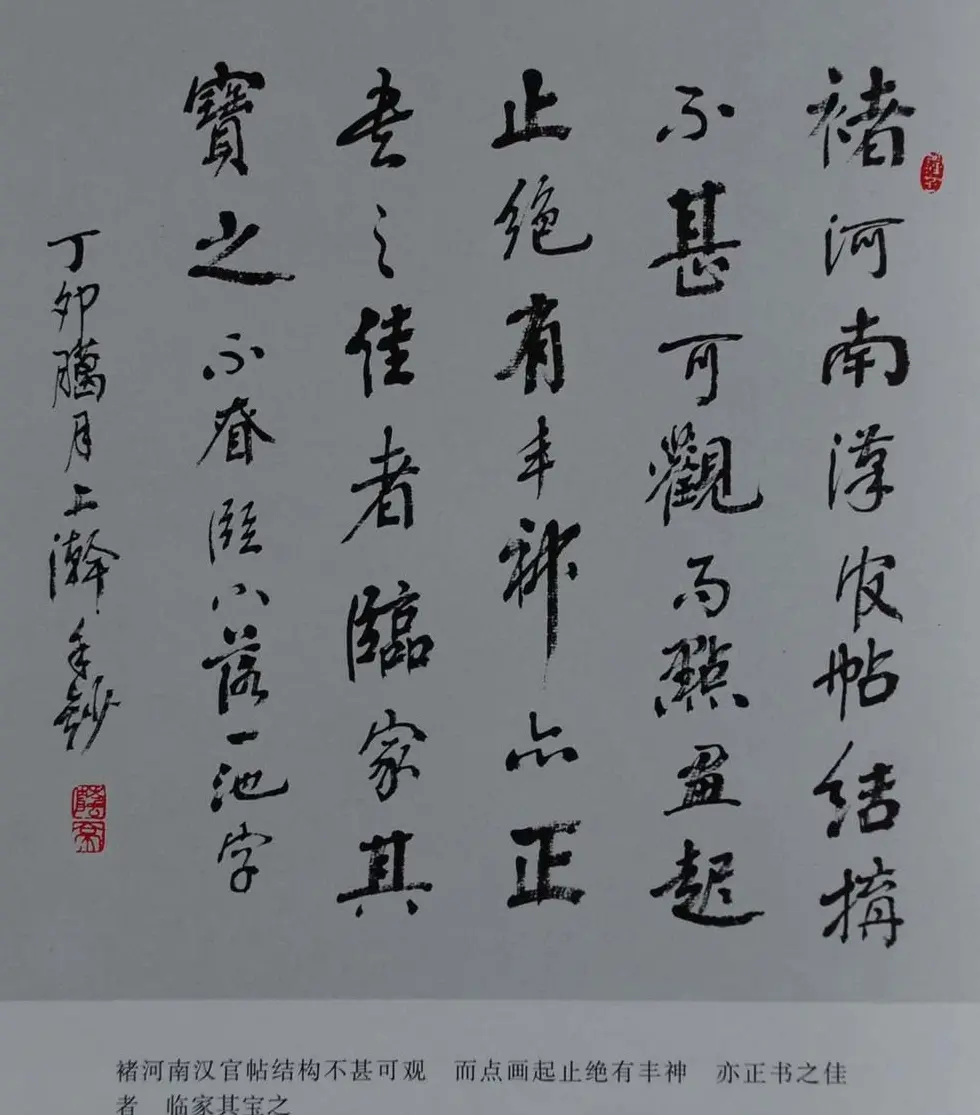 褚河南漢官帖結搆
不甚可觀而點畫起
止絶有丰神亦正
書之佳者臨家其
寶之 不眘臨下落一池字
丁卯臘月上澣手鈔
褚河南汉官帖结构不甚可观　而点画起止绝有丰神　亦正书之佳
者　临家其宝之